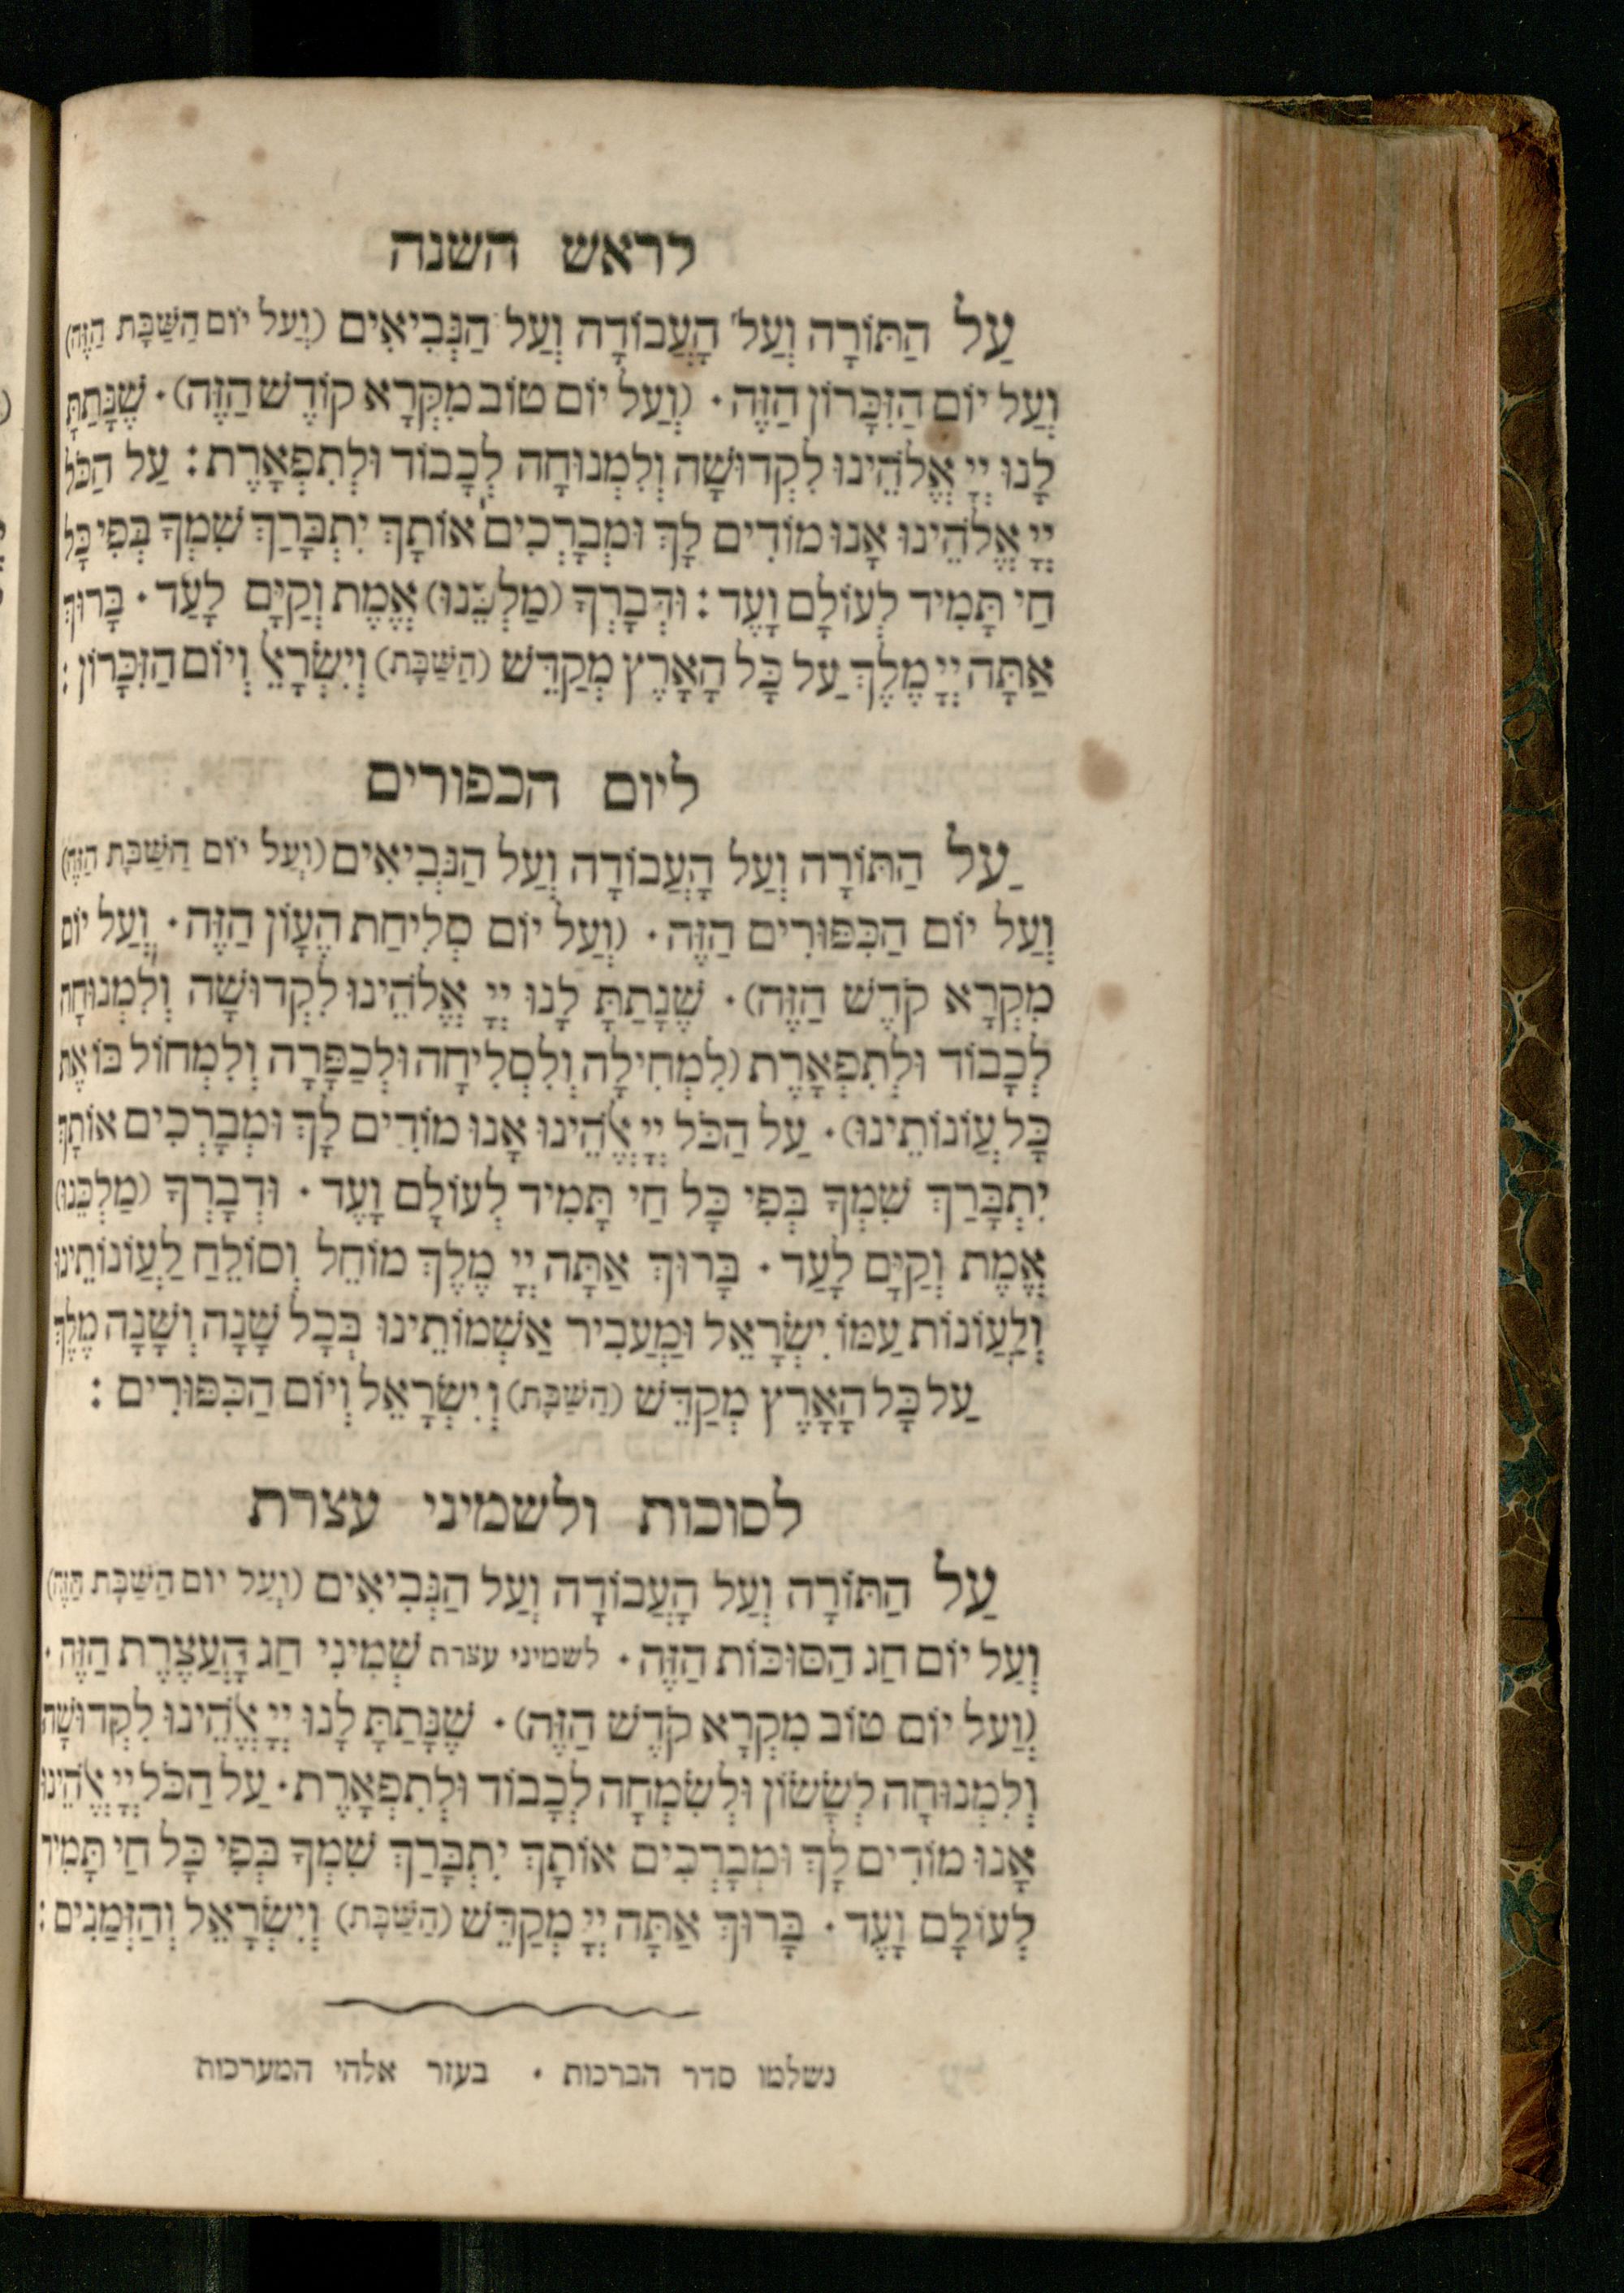 לראש השנה
עַל הַתּוֹרָה וְעַל הָעֲבוֹדָה וְעַל הַנְּבִיאִים (וְעַל יוֹם הַשַּׁבָּת הַזֶּה)
וְעַל יוֹם הַזִּכָּרוֹן הַזֶּה· (וְעַל יוֹם טוֹב מִקְרָא קוֹדֶשׁ הַזֶּה)· שֶׁנָּתַתָּ
לָנוּ יְיָ אֱלֹהֵינוּ לִקְדוּשָׁה וְלִמְנוּחָה לְכָבוֹד וּלְתִפְאָרֶת: עַל הַכֹּל
יְיָ אֱלֹהֵינוּ אָנוּ מוֹדִים לָךְ וּמְבָרְכִים אוֹתָךְ יִתְבָּרַךְ שִׁמְךָ בְּפִי כָּל
חַי תָּמִיד לְעוֹלָם וָעֶד: וּדְבָרְךָ (מַלְכֵּנוּ) אֱמֶת וְקַיָּם לָעַד· בָּרוּךְ
אַתָּה יְיָ מֶלֶךְ עַל כָּל הָאָרֶץ מְקַדֵּשׁ (הַשַּׁבָּת) וְיִשְׂרָאֵל וְיוֹם הַזִּכָּרוֹן:
ליום הכפורים
עַל הַתּוֹרָה וְעַל הָעֲבוֹדָה וְעַל הַנְּבִיאִים (וְעַל יוֹם הַשַּׁבָּת הַזֶּה)
וְעַל יוֹם הַכִּפּוּרִים הַזֶּה· (וְעַל יוֹם סְלִיחַת הֶעָוֹן הַזֶּה· וְעַל יוֹם
מִקְרָא קֹדֶשׁ הַזֶּה)· שֶׁנָּתַתָּ לָנוּ יְיָ אֱלֹהֵינוּ לִקְדוּשָׁה וְלִמְנוּחָה
לְכָבוֹד וּלְתִפְאָרֶת (לִמְחִילָה וְלִסְלִיחָה וּלְכַפָּרָה וְלִמְחוֹל בּוֹ אֶת
כָּל עֲוֹנוֹתֵינוּ)· עַל הַכֹּל יְיָ אֱלֹהֵינוּ אָנוּ מוֹדִים לָךְ וּמְבָרְכִים אוֹתָךְ
יִתְבָּרַךְ שִׁמְךָ בְּפִי כָּל חַי תָּמִיד לְעוֹלָם וָעֶד· וּדְבָרְךָ (מַלְכֵּנוּ)
אֱמֶת וְקַיָּם לָעַד· בָּרוּךְ אַתָּה יְיָ מֶלֶךְ מוֹחֵל וְסוֹלֵחַ לַעֲוֹנוֹתֵינוּ
וְלַעֲוֹנוֹת עַמּוֹ יִשְׂרָאֵל וּמַעֲבִיר אַשְׁמוֹתֵינוּ בְּכָל שָׁנָה וְשָׁנָה מֶלֶךְ
עַל כָּל הָאָרֶץ מְקַדֵּשׁ (הַשַּׁבָּת) וְיִשְׂרָאֵל וְיוֹם הַכִּפּוּרִים:
לסוכות ולשמיני עצרת
עַל הַתּוֹרָה וְעַל הָעֲבוֹדָה וְעַל הַנְּבִיאִים (וְעַל יוֹם הַשַּׁבָּת הַזֶּה)
וְעַל יוֹם חַג הַסּוּכּוֹת הַזֶּה· לשמיני עצרת שְׁמִינִי חַג הָעֲצֶרֶת הַזֶּה·
(וְעַל יוֹם טוֹב מִקְרָא קֹדֶשׁ הַזֶּה)· שֶׁנָּתַתָּ לָנוּ יְיָ אֱלֹהֵינוּ לִקְדוּשָׁה
וְלִמְנוּחָה לְשָׂשׂוֹן וּלְשִׂמְחָה לְכָבוֹד וּלְתִפְאָרֶת· עַל הַכֹּל יְיָ אֱלֹהֵינוּ
אָנוּ מוֹדִים לָךְ וּמְבָרְכִים אוֹתָךְ יִתְבָּרַךְ שִׁמְךָ בְּפִי כָּל חַי תָּמִיד
לְעוֹלָם וָעֶד· בָּרוּךְ אַתָּה יְיָ מְקַדֵּשׁ (הַשַּׁבָּת) וְיִשְׂרָאֵל וְהַזְּמַנִּים:
נשלמו סדר הברכות· בעזר אלהי המערכות